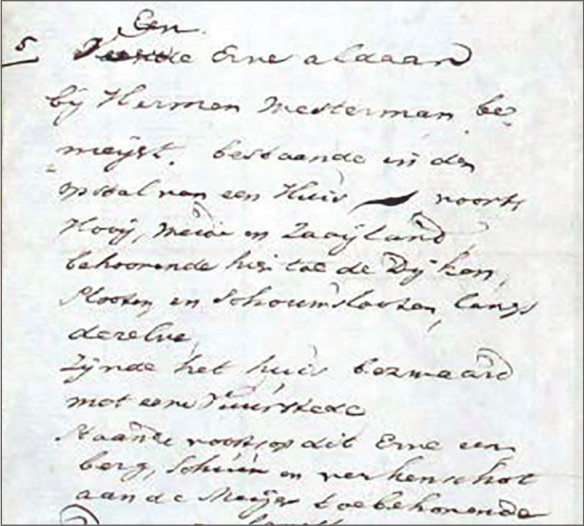 Een
5 Vierde Erve aldaar
bij Hermen Westerman be
meijert. bestaande in den
opstal van een Huis, voorts
Hooij, weide en Zaaijland,
behoorende hier toe de Dijken,
Slooten en Schouwslooten, langs
dezelve,
Zijnde het huis bezwaard
met eene Vuurstede
Staande voorts op dit Erve een
berg, Schuur en varkenschot
aan de Meijer toebehorende